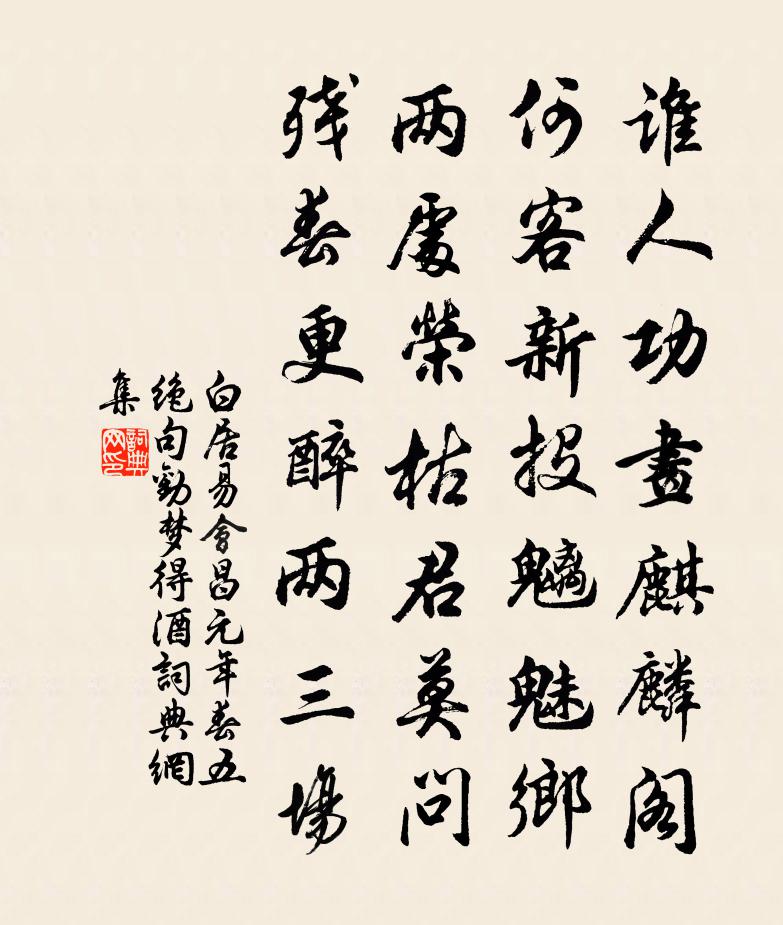 谁人功畫麒麟阁
何客新投魑魅鄉
两處榮枯君莫问
残春更醉两三場
白居易會昌元年春五
绝句勸梦得酒詞典網
集
詞典网印